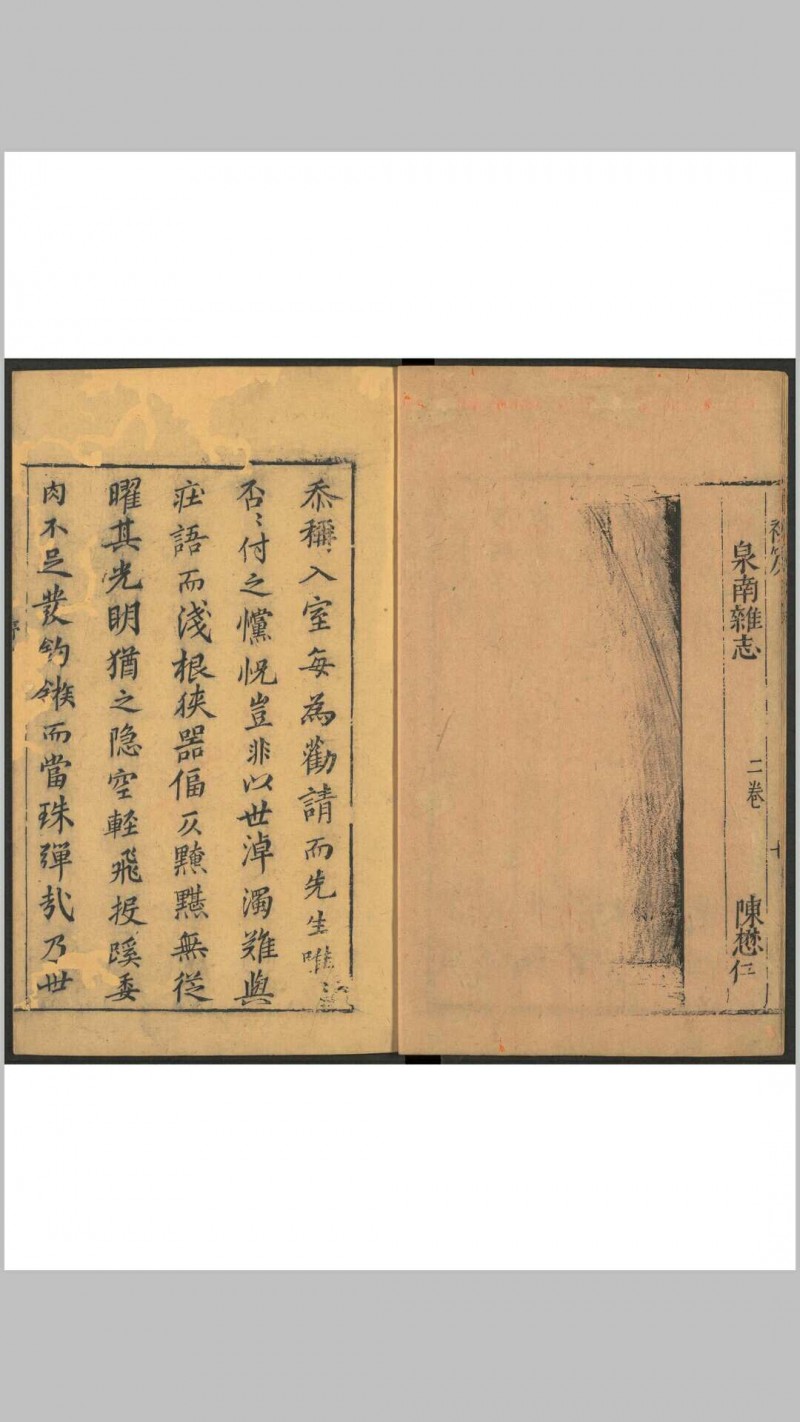 泉南雜志 二卷 陳懋仁
忝稱入室每為勸請而先生唯〻
否〻付之戃怳豈非以世淖濁難與
莊語而淺根狹器偪仄黤黮無從
曜其光明猶之隐空輕飛投蹊委
肉不足發釣鏃而當珠彈㢤乃世